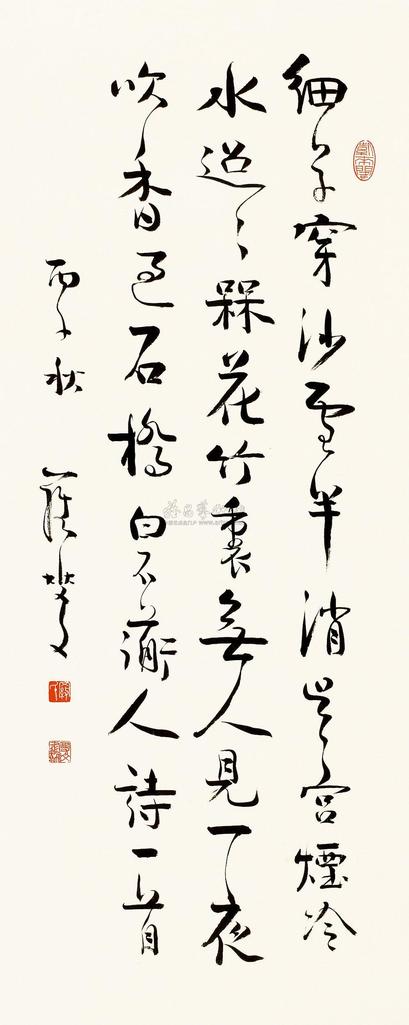 細草穿沙雪半消吳宮煙冷
水迢〻槑花竹裏無人見一夜
吹香過石橋 白石衜人詩一首
丙子秋